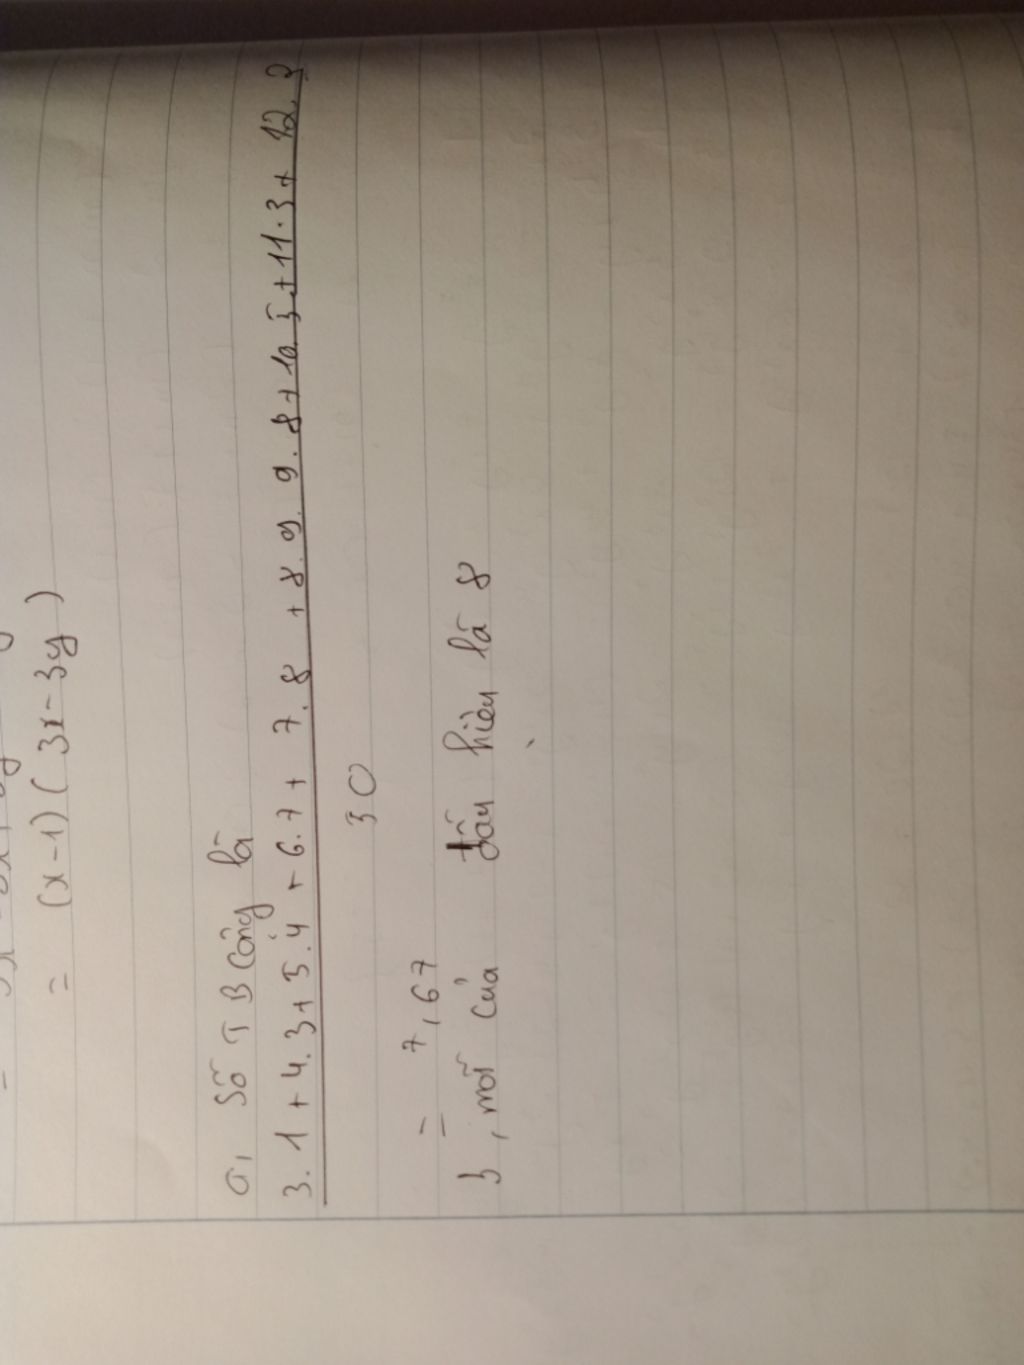 = (x-1)(3x-3y)
a, Số TB cộng là
3.1+4.3+5.4+6.7+7.8+8.9.9.8+10.5+11.3+12.2
30
= 7,67
b, mỗi của dấu hiệu là 8